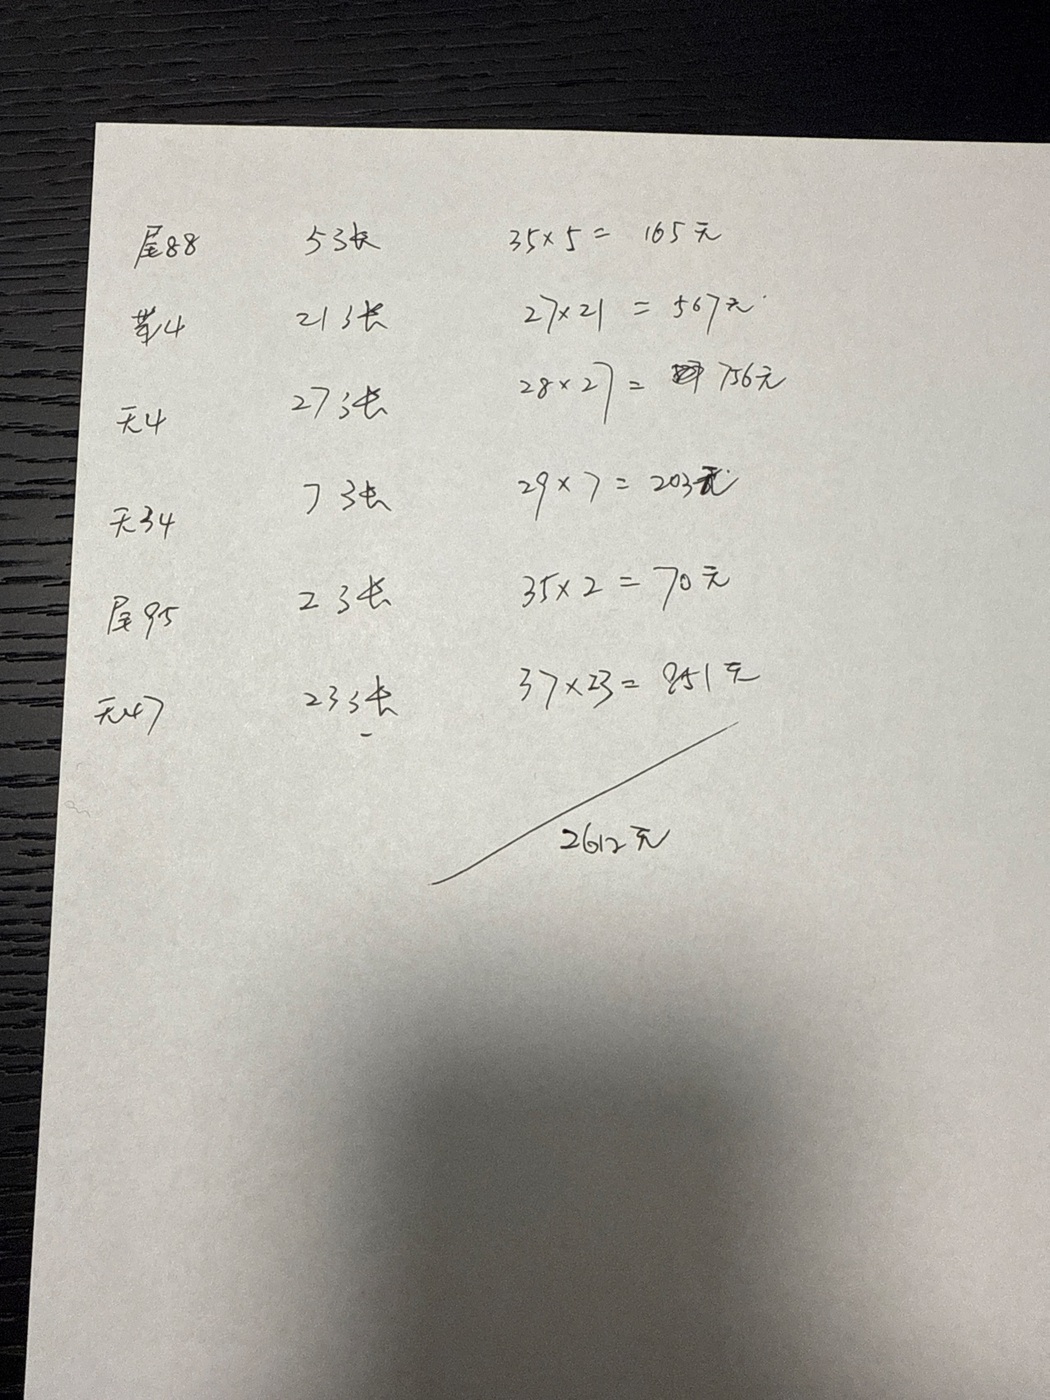 尾88 5张 35×5= 165元
带4 21张 27×21 = 567元
天4 27张 28×27= 756元
天34 7张 29×7=203元
尾95 2张 35×2=70元
天47 23张 37×23= 851元
2612元